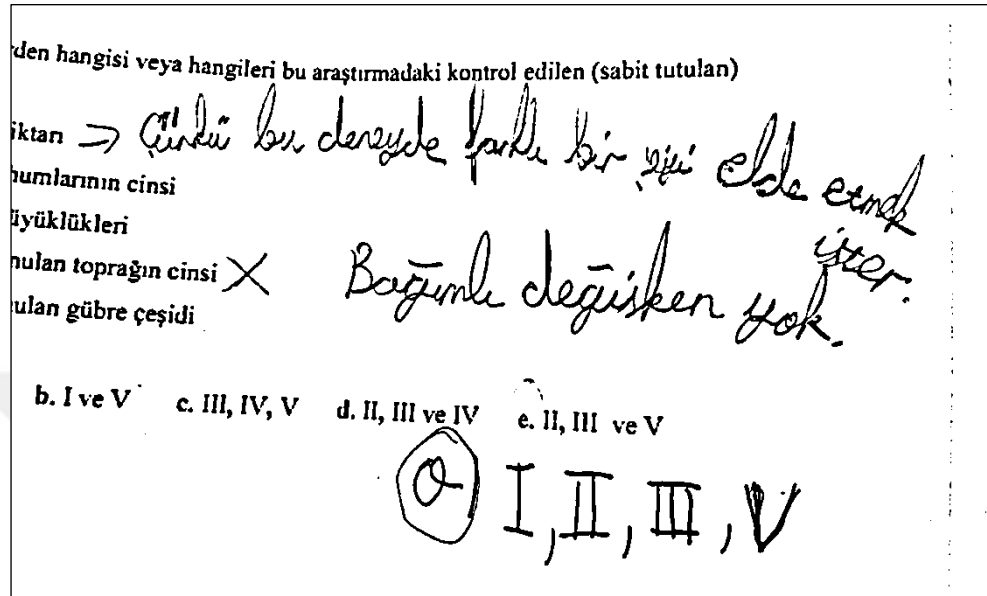 den hangisi veya hangileri bu araştırmadaki kontrol edilen (sabit tutulan)
iktarı → Çünkü bu deneyde farklı bir şeyi elde etmek
ister.
humlarının cinsi
üyüklükleri
nulan toprağın cinsi X Bağımlı değişken yok.
ulan gübre çeşidi
b. I ve V c. III, IV, V d. II, III ve IV e. II, III ve V
I, II, III, V